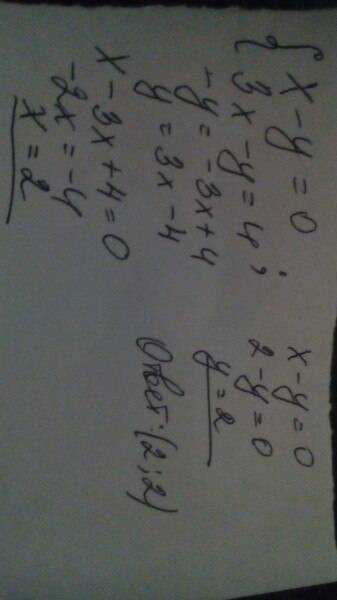 { x - y = 0
3x - y = 4;
-y = -3x + 4
y = 3x - 4
x - 3x + 4 = 0
-2x = -4
x = 2
x - y = 0
2 - y = 0
y = 2
Ответ: (2; 2)